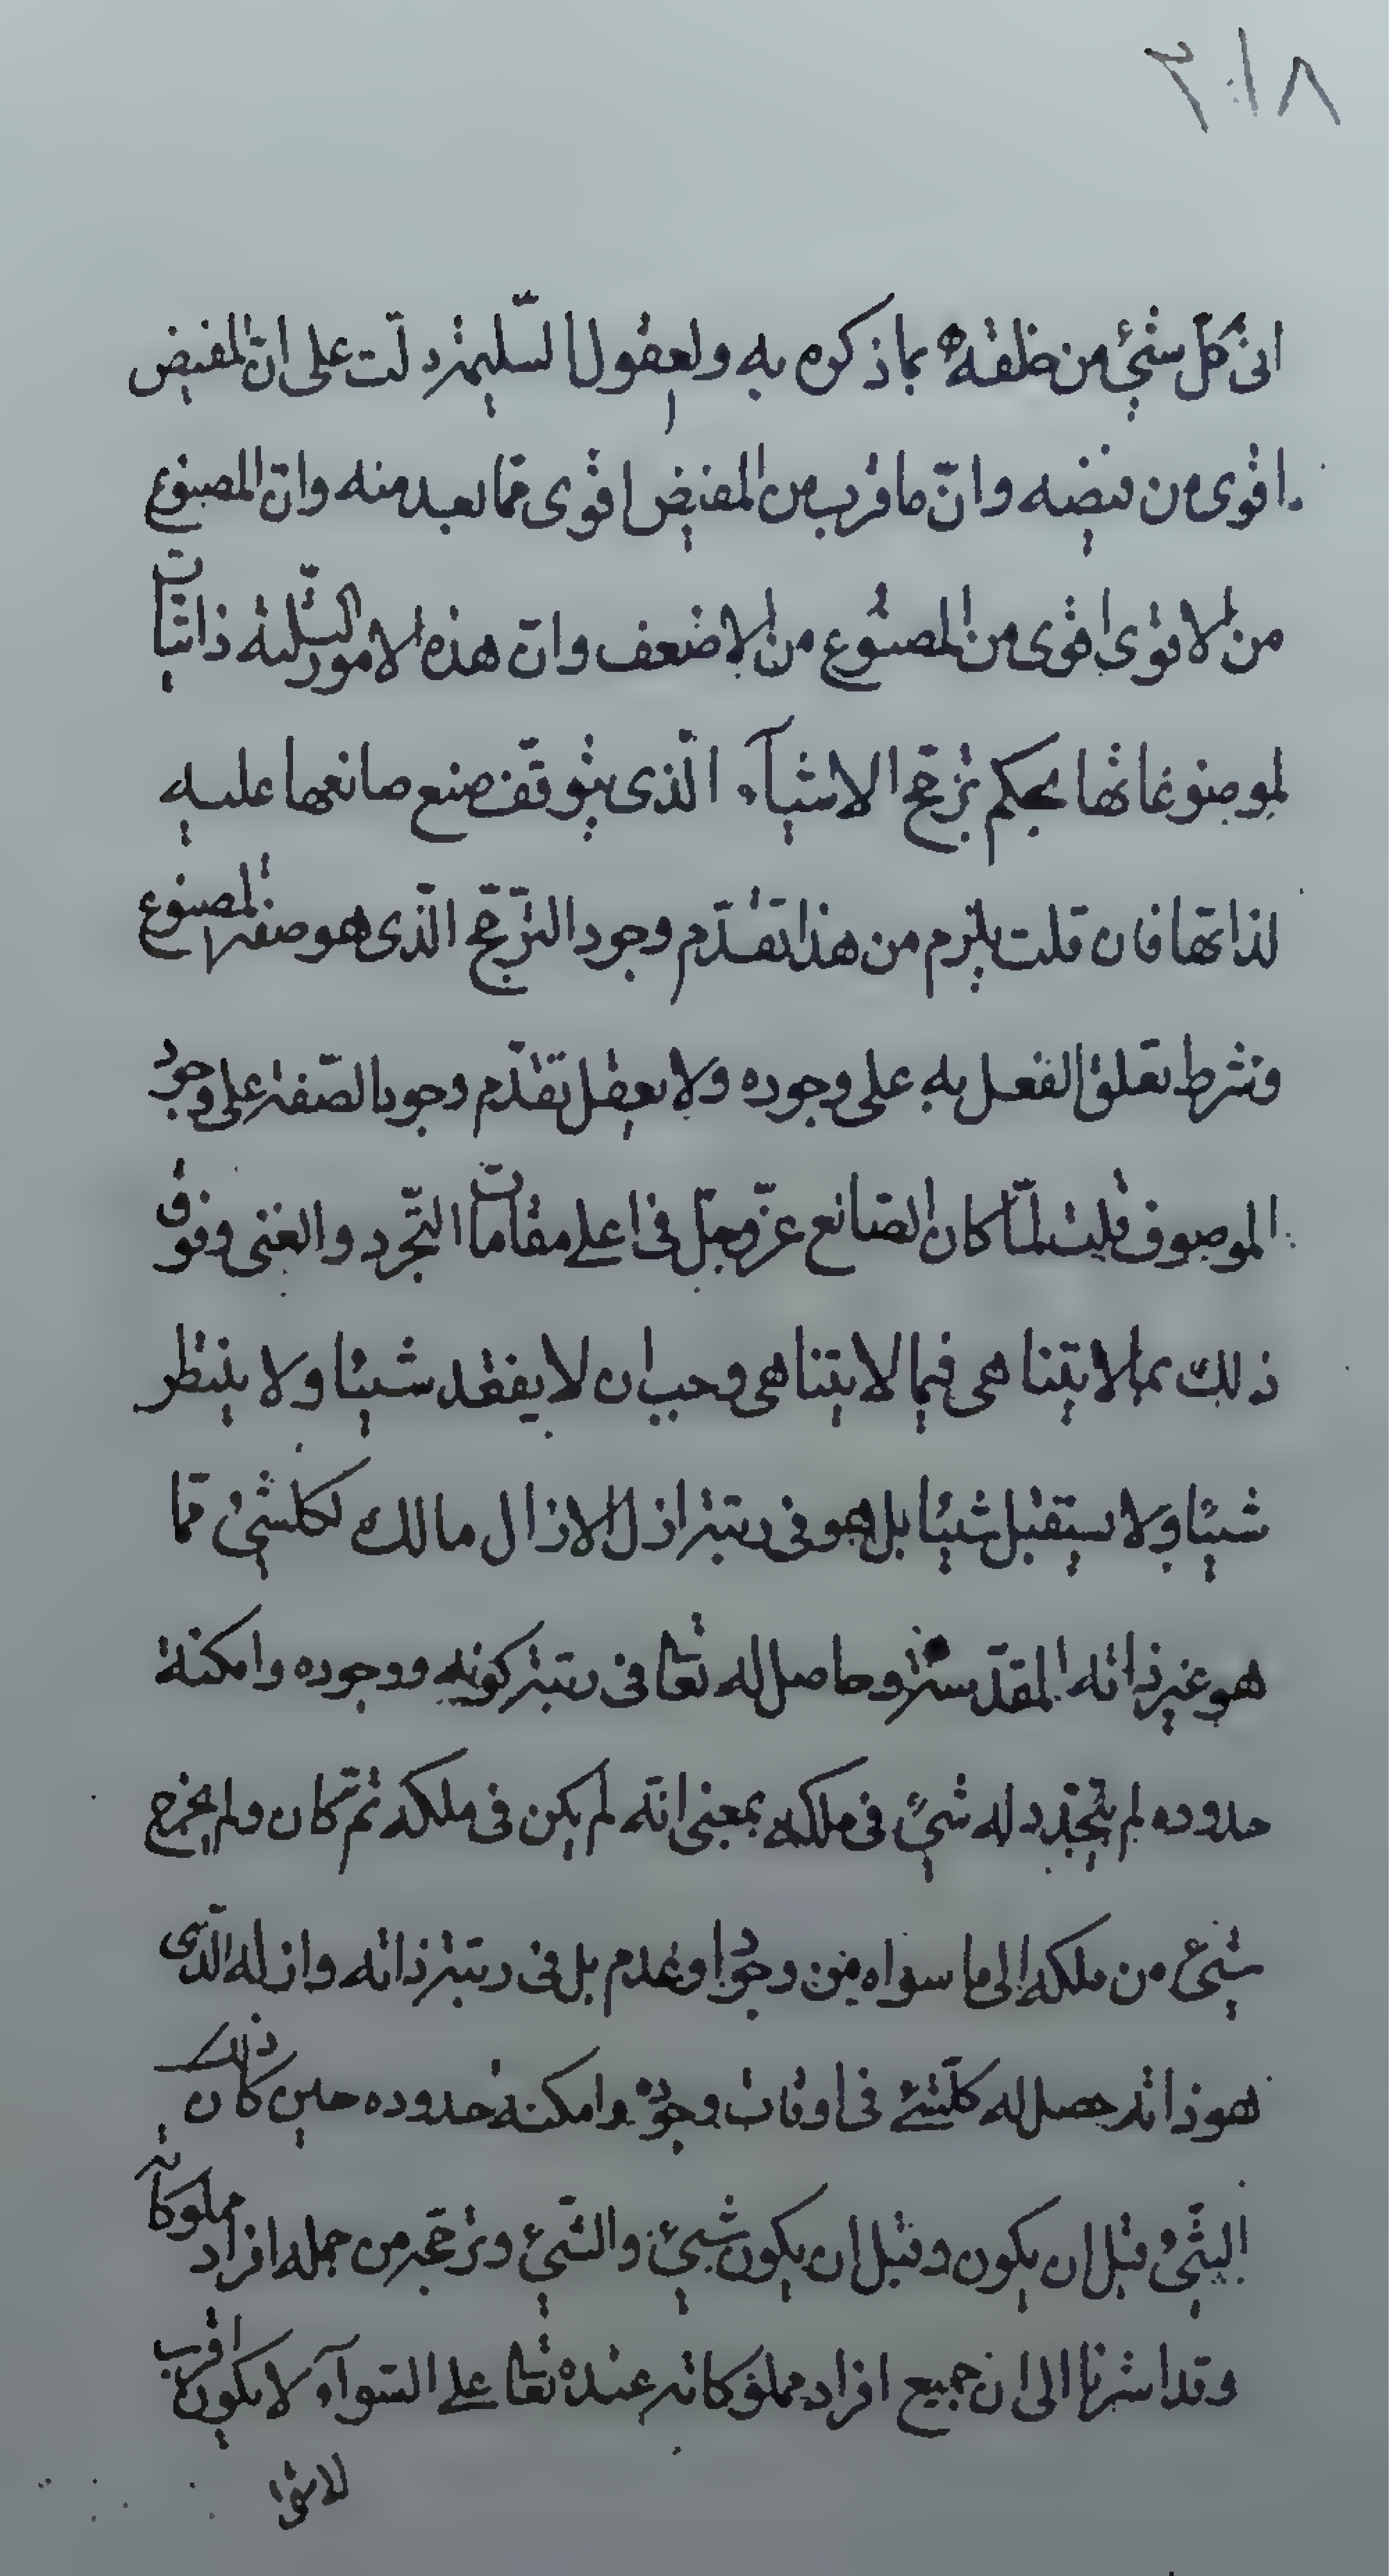 انّ كلّ شيئ من خلقه بما ذكره به والعقول السّليمة دلّت على انّ المفيض
اقوى من فيضه وانّ ما قرب من المفيض اقوى ممّا بعد منه وانّ المصنوع
من الاقوى اقوى من المصنوع من الاضعف وانّ هذه الامور الثلثة ذاتيّات
لموضوعاتها بحكم ترجّح الاشيآء الّذى يتوقّف صنع صانعها عليه
لذاتها فان قلت يلزم من هذا تقدّم وجود الترجّح الّذى هو صفة المصنوع
وشرط تعلق الفعل به على وجوده ولا يعقل تقدّم وجود الصّفة على وجود
الموصوف قلت لمّا كان الصّانع عزّ وجلّ فى اعلے مقامات التّجرد والغنى وفوق
ذلك بما لا يتناهى فيما لا يتناهى وجب ان لا يفقد شيئا ولا ينتظر
شيئا ولا يستقبل شيئا بل هو فى رتبة ازل الازال مالك لكلشئ ممّا
هو غير ذاته المقدّسة وحاصل له تعالى فى رتبة كونه ووجوده وامكنة
حدوده لم يتجدد له شئ فى ملكه بمعنى انّه لم يكن فى ملكه ثمّ كان ولم يخرج
شئ من ملكه الى ما سواه من وجود او عدم بل فى رتبة ذاته وازله الّذى
هو ذاته حصل له كلّشئ فى اوقات وجوده وامكنة حدوده حين كان ذلك
الشئ قبل ان يكون وقبل ان يكون شيئ والشّئ وترجّحه من جمله افراد مملوكاته
وقد اشرنا الى ان جميع افراد مملوكاته عنده تعالى علے السّوآء لا يكون اقرب